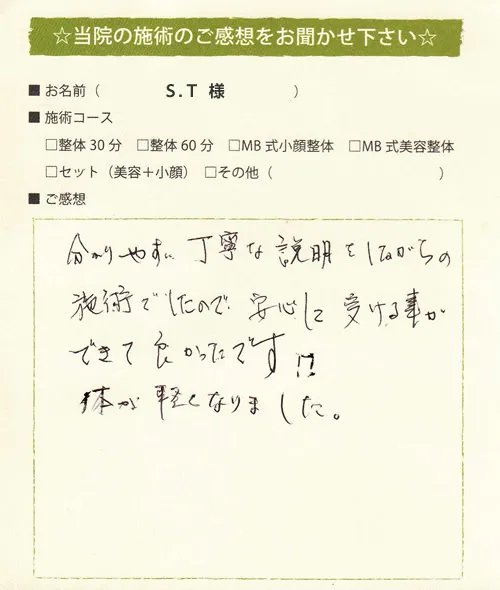 ☆当院の施術のご感想をお聞かせ下さい☆
■ お名前（ S.T 様 ）
■ 施術コース
□整体30分 □整体60分 □MB式小顔整体 □MB式美容整体
□セット（美容＋小顔） □その他（ ）
■ ご感想
分かりやすい丁寧な説明をしながらの
施術でしたので安心して受ける事が
できて良かったです!!
体が軽くなりました。